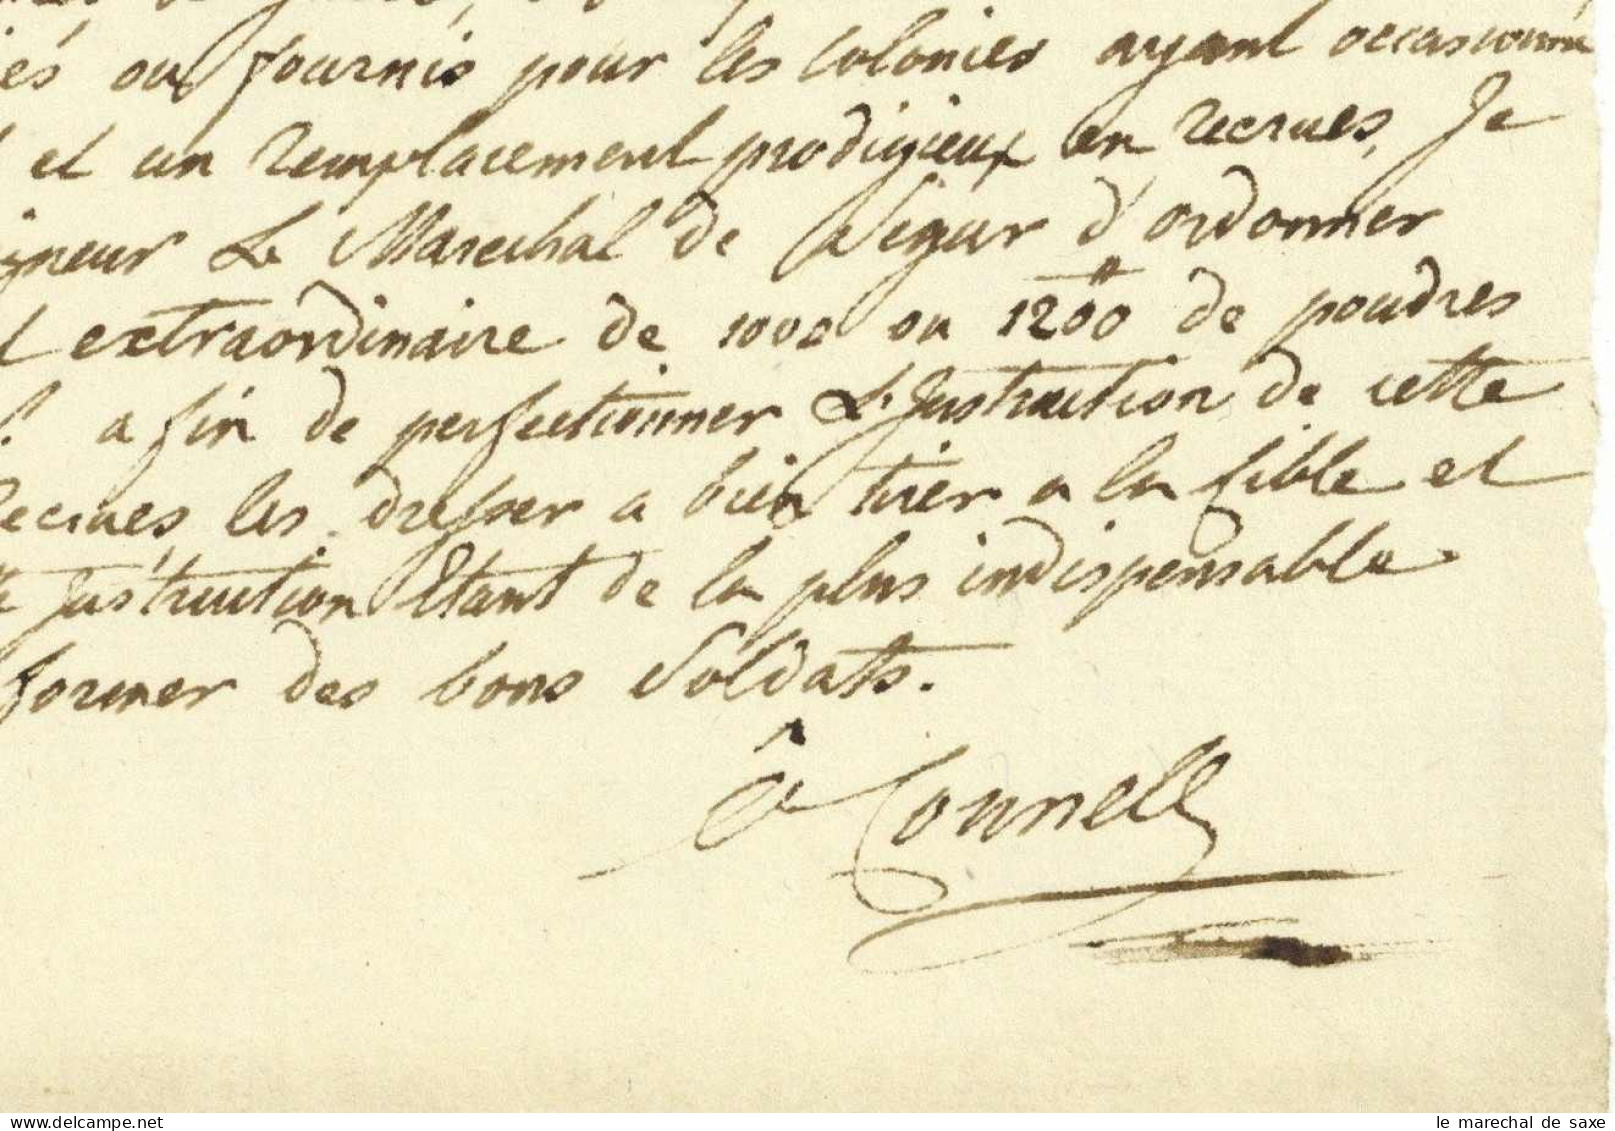 és ou fournis pour les Colonies ayant occasionné
et un remplacement prodigieux en recrues, Je
igneur Le Marechal de Segur d'ordonner
extraordinaire de 1000 ou 1200 # de poudres
a fin de perfectionner L'Instruction de cette
Recrues les dresser a bien tirer a la Cible et
Instruction Etant de la plus indispensable
former des bons Soldats.
O Connell
le marechal de saxe